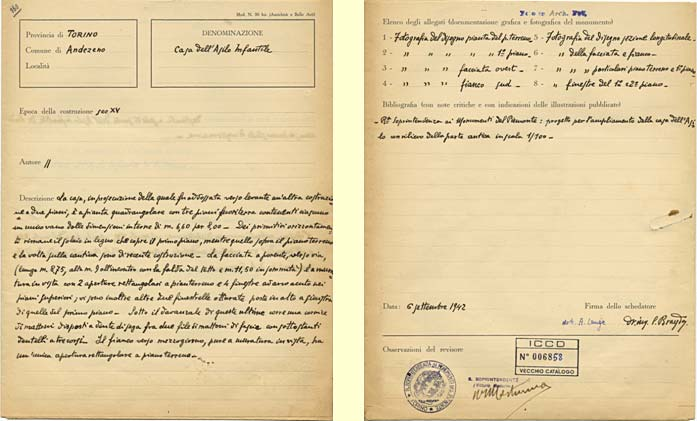 Mod. N. 36 bis (Antichità e Belle Arti)
Provincia di TORINO
Comune di Andezeno
Località
DENOMINAZIONE
Casa dell'Asilo Infantile
Epoca della costruzione sec XV
Autore //
Descrizione La casa, in prosecuzione della quale fu addossata verso levante un'altra costruzio
ne a due piani, è a pianta quadrangolare con tre piani fuori terra contenenti ciascuno
un unico vano delle dimensioni interne di m. 6,60 per 8,00 - Dei primitivi orizzontamen
ti rimane il solaio in legno che copre il primo piano, mentre quello sopra il piano terreno
e la volta sulla cantina sono di recente costruzione - La facciata a ponente, verso via,
(lunga m. 8,75, alta m. 9 all'incontro con la falda del tetto e m. 11,50 in sommità) è a mura
tura in vista con 2 aperture rettangolari a pianterreno e 4 finestre ad arco acuto nei
piani superiori; vi sono inoltre altre due finestrelle otturate poste in alto a finestra
di quelle del primo piano. Sotto il davanzale di queste ultime corre una cornice
di mattoni disposti a dente di sega fra due file di mattoni di fascia con sottostanti
dentelli a tre corsi. Il fianco verso mezzogiorno, pure a muratura in vista, ha
un'unica apertura rettangolare a piano terreno
Elenco degli allegati (documentazione grafica e fotografica del monumento)
1 - Fotografia del Disegno pianta del p. terreno 5 - Fotografia del Disegno sezione longitudinale
2 - " " " " 1° piano - 6 - " della facciata e fianco -
3 - " " " facciata ovest - 7 - " " " particolari piano terreno e 1° piano
4 - " " " fianco sud - 8 - " finestre del 1° e 2° piano -
Bibliografia (con note critiche e con indicazioni delle illustrazioni pubblicate)
R. Soprintendenza ai Monumenti del Piemonte: progetto per l'ampliamento della casa dell'Asi
lo con rilievo della parte antica in scala 1/100 -
Data: 6 settembre 1942
Firma dello schedatore
Osservazioni del revisore
ICCD
N° 006858
VECCHIO CATALOGO
IL SOPRINTENDENTE